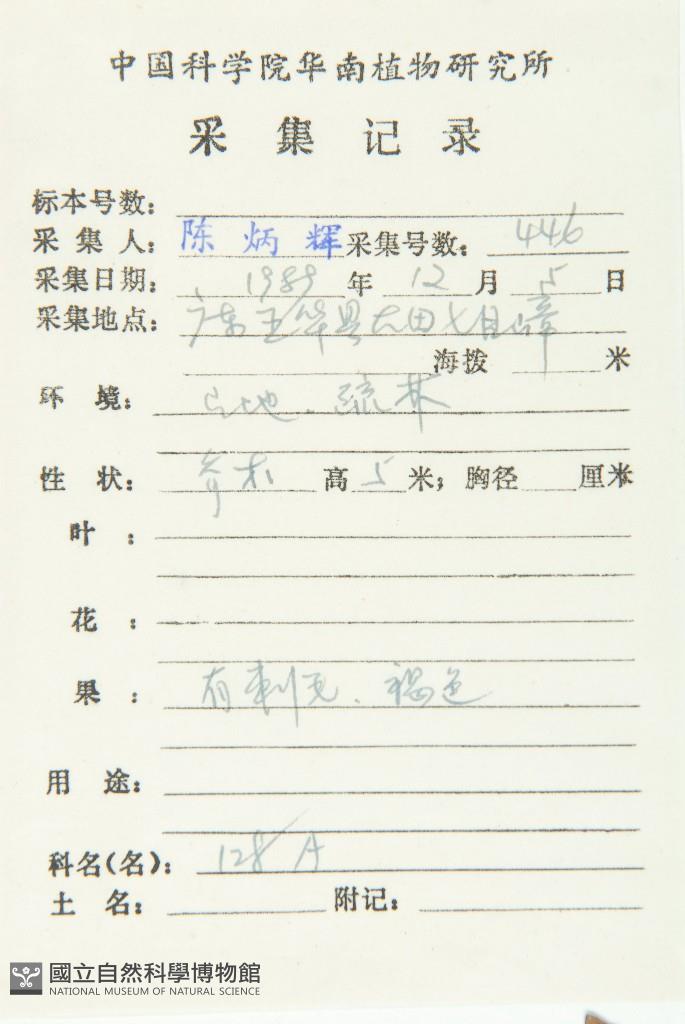 中国科学院华南植物研究所
采集记录
标本号数：
采集人：陈炳辉 采集号数：446
采集日期：1989年12月5日
采集地点：广东五华县大田七目嶂
海拨 米
环境：山地．疏林
性状：乔木 高5米；胸径 厘米
叶：
花：
果：有刺毛．褐色
用途：
科名(名)：128A
土名： 附记：
國立自然科學博物館
NATIONAL MUSEUM OF NATURAL SCIENCE